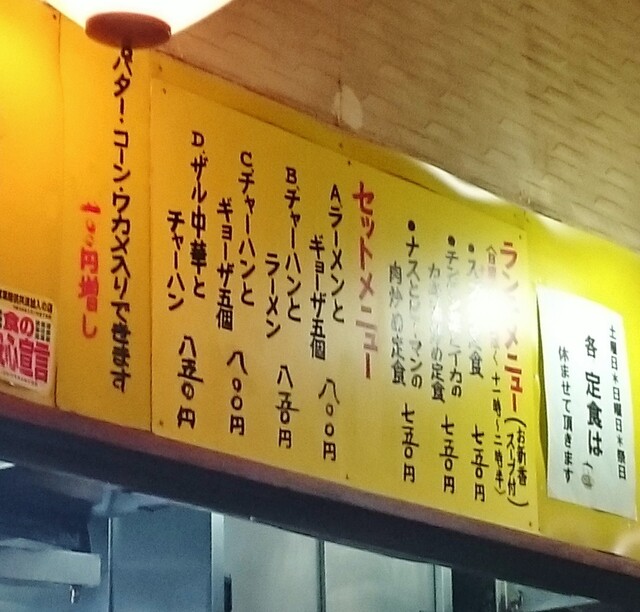 土曜日*日曜日*祭日
各定食は
休ませて頂きます
メニュー(お新香
スープ付)
十一時〜二時半)
定食 七五〇円
イカの
の定食 七五〇円
•ナスとピーマンの
肉炒め定食 七五〇円
セットメニュー
A.ラーメンと
ギョーザ五個 八〇〇円
B.チャーハンと
ラーメン 八五〇円
C.チャーハンと
ギョーザ五個 八〇〇円
D.ザル中華と
チャーハン 八五〇円
バター・コーン・ワカメ入りできます
円増し
食の